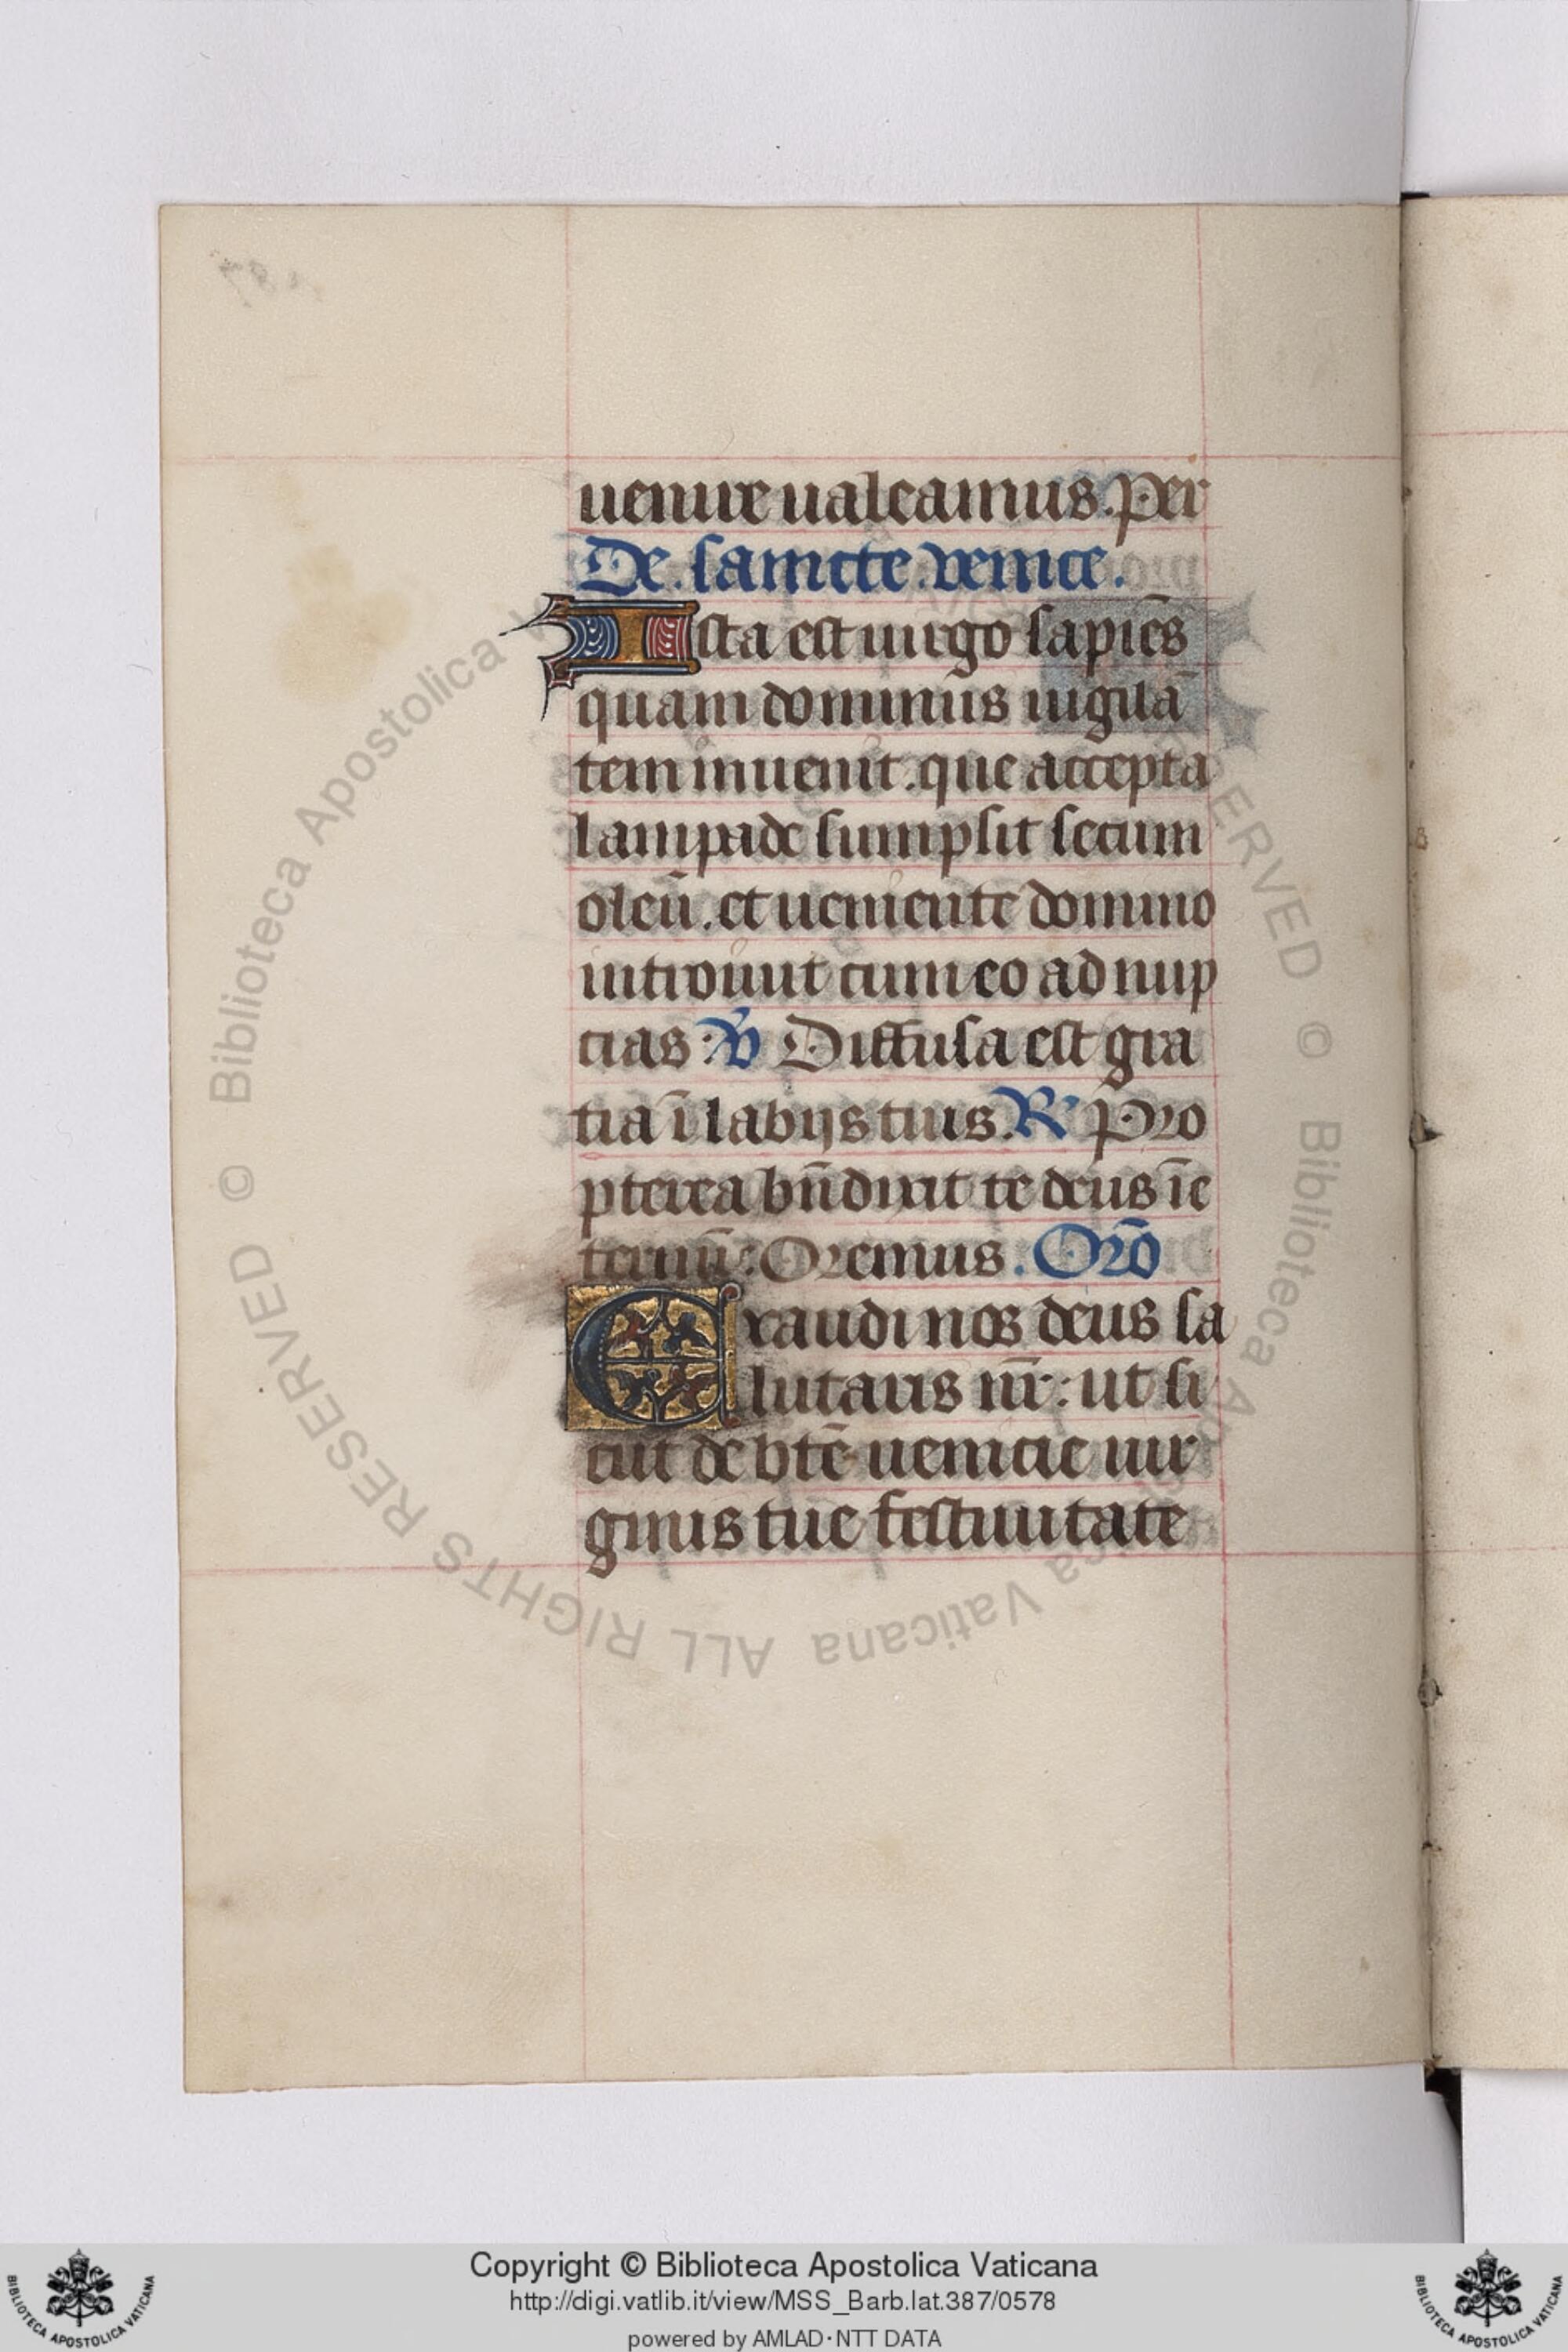 uenire ualeamus. Per
De. samcte. venice.
Ista est uirgo sapiēs
quam dominus uigilā
tem inuenit. que accepta
lampade sumpsit secum
oleū. et ueniente domino
introiuit cum eo ad nup
cias: V Diffusa est gra
tia ī labijs tuis. R Pro
pterea bn̄dixit te deus ī e
ternū: Oremus. Orō
Exaudi nos deus sa
lutaris nr̄: ut si
cut de btē uenicie uir
ginis tue festiuitate
Biblioteca Apostolica Vaticana ALL RIGHTS RESERVED ©
Copyright © Biblioteca Apostolica Vaticana
http://digi.vatlib.it/view/MSS_Barb.lat.387/0578
powered by AMLAD·NTT DATA
BIBLIOTECA APOSTOLICA VATICANA
BIBLIOTECA APOSTOLICA VATICANA